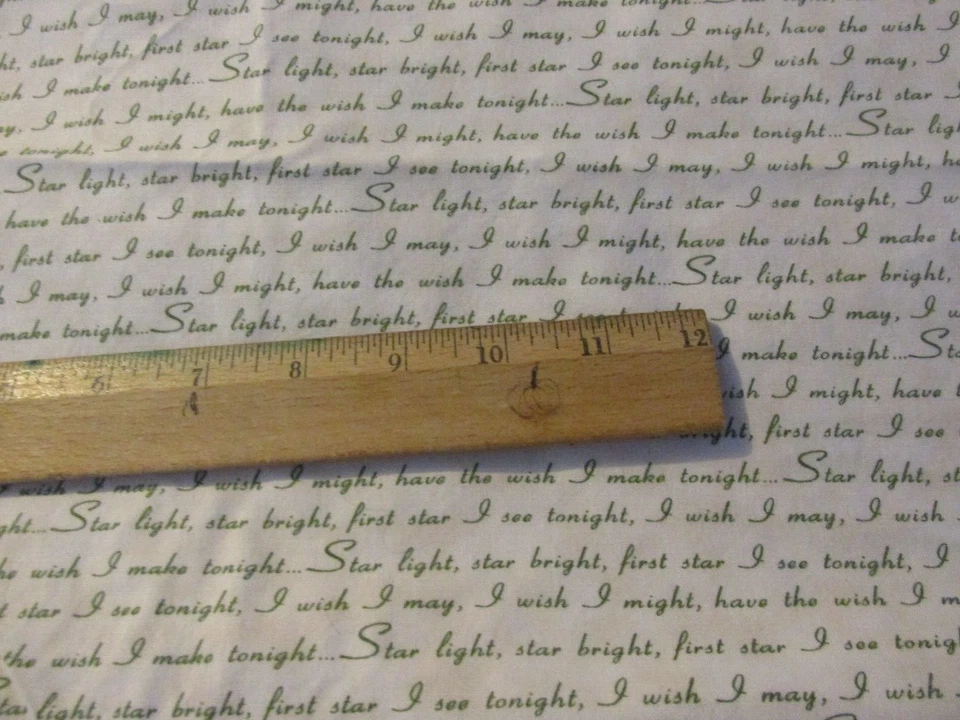 I wish I may, I wish I might, have the wish I make tonight...Star light, star
star bright, first star I see tonight, I wish I may, I wish I might, have the wish I
I make tonight...Star light, star bright, first star I see tonight, I wish I may, I
I wish I might, have the wish I make tonight...Star light, star bright, first star
tonight, I wish I may, I wish I might, have the wish I make tonight...Star
Star light, star bright, first star I see tonight, I wish I may, I wish I might,
have the wish I make tonight...Star light, star bright, first star I see tonight, I
, first star I see tonight, I wish I may, I wish I might, have the wish I make
I may, I wish I might, have the wish I make tonight...Star light, star bright,
make tonight...Star light, star bright, first star I see I wish I may, I
6 7 8 9 10 11 12
I make tonight...
I might, have
, first star I see
I wish I may, I wish I might, have the wish I make tonight...Star light,
Star light, star bright, first star I see tonight, I wish I may, I wish
wish I make tonight...Star light, star bright, first star I see tonight, I
star I see tonight, I wish I may, I wish I might, have the wish I
the wish I make tonight...Star light, star bright, first star I see
light, star bright, first star I see tonight, I wish I may, I wish